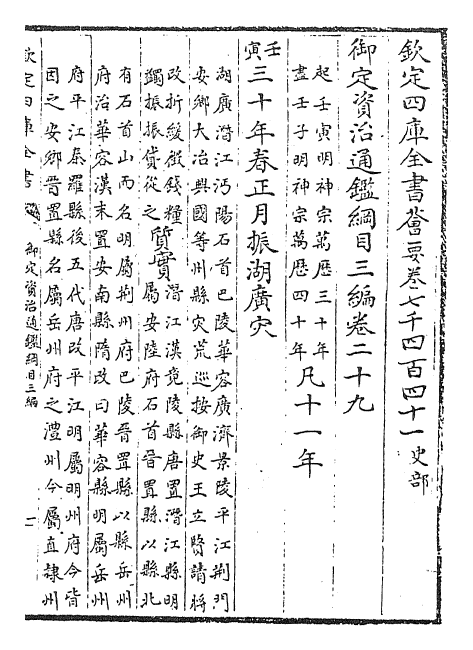 欽定四庫全書薈要卷七千四百四十一史部
御定資治通鑑綱目三編卷二十九
起壬寅明神宗萬歷三十年
盡壬子明神宗萬歷四十年凡十一年
壬寅三十年春正月振湖廣灾
湖廣潛江沔陽石首巴陵華容廣濟景陵平江荆門
安鄉大冶興國等州縣灾荒巡按御史王立賢請將
改折緩徵錢糧
蠲振振貸從之質實潛江漢竟陵縣唐置潛江縣明
屬安陸府石首晉置縣以縣北
有石首山而名明屬荆州府巴陵晉置縣以縣岳州
府治華容漢末置安南縣隋改曰華容縣明屬岳州
府平江秦羅縣後五代唐改平江明屬明州府今皆
因之安鄉晉置縣名屬岳州府之澧州今屬直隸州
欽定四庫全書
御定資治通鑑綱目三編
一